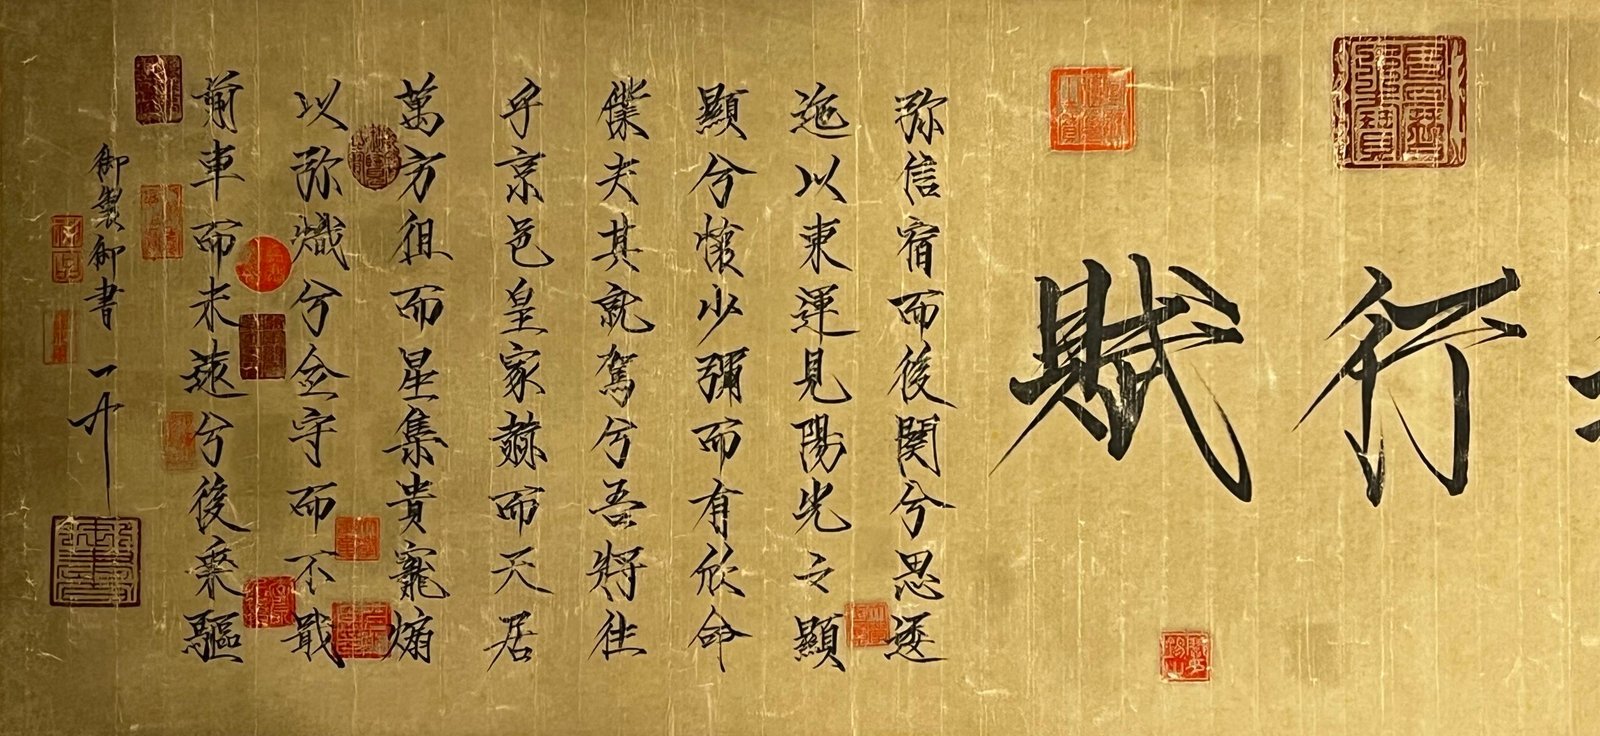 行賦
弥信宿而後闋兮思逶
迤以東運見陽光之顯
顯兮懷少彌而有欣命
僕夫其就駕兮吾將往
乎京邑皇家赫而天居
萬方徂而星集貴寵煽
以弥熾兮僉守而不戢
前車而未遠兮後乘驅
御製御書